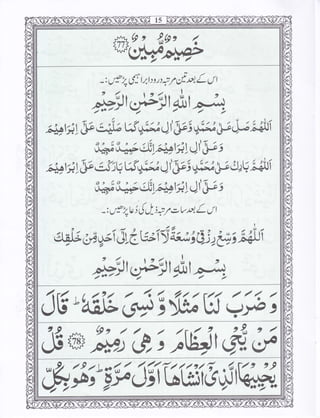 15
خَصِيْمٌ مُّبِيْنٌ ﴿77﴾
اس کے بعد تین مرتبہ درود ابراہیمی پڑھیں:۔
بِسْمِ اللهِ الرَّحْمٰنِ الرَّحِيْمِ
اَللّٰهُمَّ صَلِّ عَلٰى مُحَمَّدٍ وَّعَلٰٓى اٰلِ مُحَمَّدٍ كَمَا صَلَّيْتَ عَلٰٓى اِبْرَاهِيْمَ
وَعَلٰٓى اٰلِ اِبْرَاهِيْمَ اِنَّكَ حَمِيْدٌ مَّجِيْدٌ
اَللّٰهُمَّ بَارِكْ عَلٰى مُحَمَّدٍ وَّعَلٰٓى اٰلِ مُحَمَّدٍ كَمَا بَارَكْتَ عَلٰٓى اِبْرَاهِيْمَ
وَعَلٰٓى اٰلِ اِبْرَاهِيْمَ اِنَّكَ حَمِيْدٌ مَّجِيْدٌ
اس کے بعد سات مرتبہ ذیل کی دعا پڑھیں:۔
اَللّٰهُمَّ وَسِّعْ رِزْقِىْ وُسْعَةً لَّآ اَحْتَاجُ اِلٰٓى اَحَدٍ مِّنْ خَلْقِكَ
بِسْمِ اللهِ الرَّحْمٰنِ الرَّحِيْمِ
وَ ضَرَبَ لَنَا مَثَلًا وَّ نَسِىَ خَلْقَهٗ ؕ قَالَ
مَنْ يُّحْىِ الْعِظَامَ وَ هِىَ رَمِيْمٌ ﴿78﴾ قُلْ
يُحْيِيْهَا الَّذِىْٓ اَنْشَاَهَاۤ اَوَّلَ مَرَّةٍ ؕ وَهُوَ بِكُلِّ